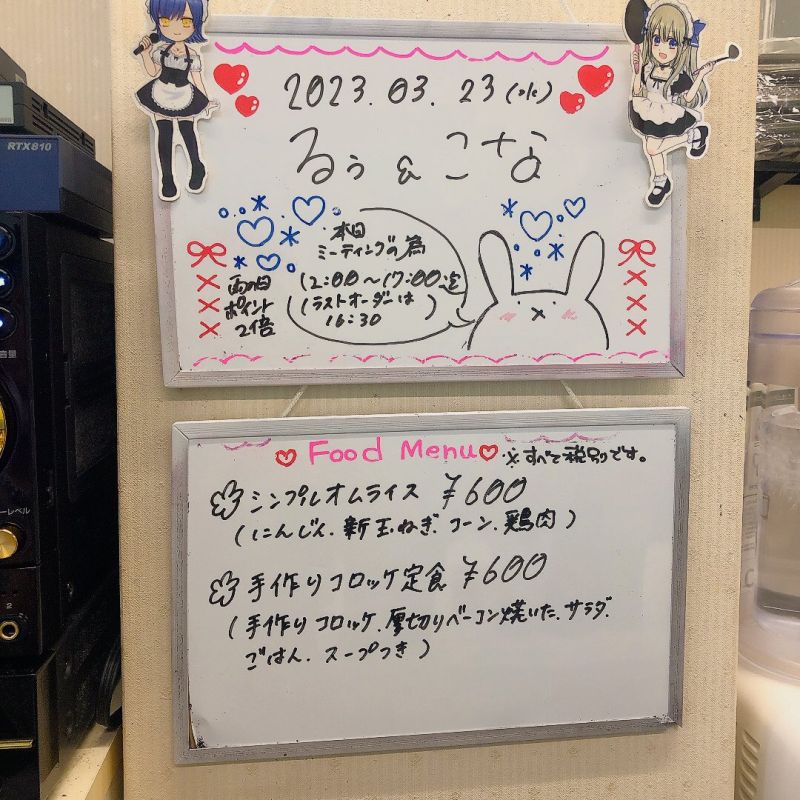 RTX810
2023.03.23(水)
るぅ & こな
本日
ミーティングの為
12:00〜17:00迄
(ラストオーダーは
16:30)
雨の日
ポイント
2倍
Food Menu
※すべて税別です。
シンプルオムライス ¥600
(にんじん、新玉ねぎ、コーン、鶏肉)
手作りコロッケ定食 ¥600
(手作りコロッケ、厚切りベーコン焼いた、サラダ、
ごはん、スープつき)
音量
ーレベル
2